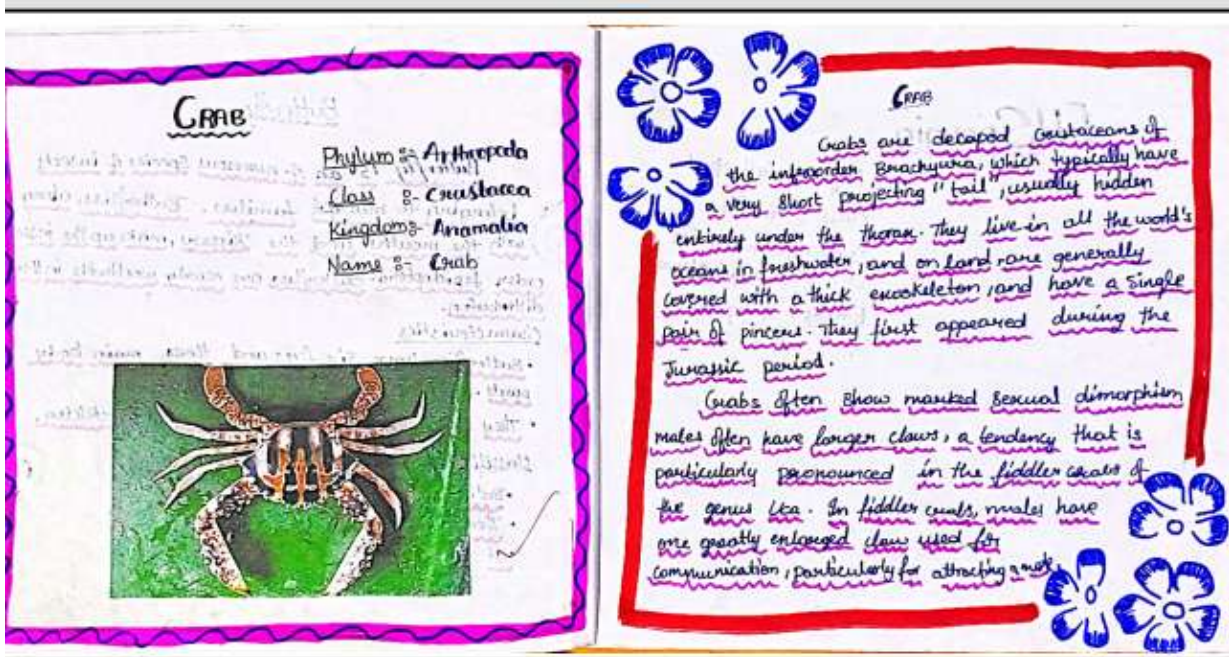 CRAB
Phylum :- Arthropoda
Class :- Crustacea
Kingdom :- Anamalia
Name :- Crab
CRAB
Crabs are decapod crustaceans of
the infraorder Brachyura, which typically have
a very short projecting "tail", usually hidden
entirely under the thorax. They live in all the world's
oceans in freshwater, and on land, are generally
covered with a thick exoskeleton, and have a single
pair of pincers. They first appeared during the
Jurassic period.
Crabs often show marked sexual dimorphism
males often have larger claws, a tendency that is
particularly pronounced in the fiddler crabs of
the genus Uca. In fiddler crabs, males have
one greatly enlarged claw used for
communication, particularly for attracting a mate.